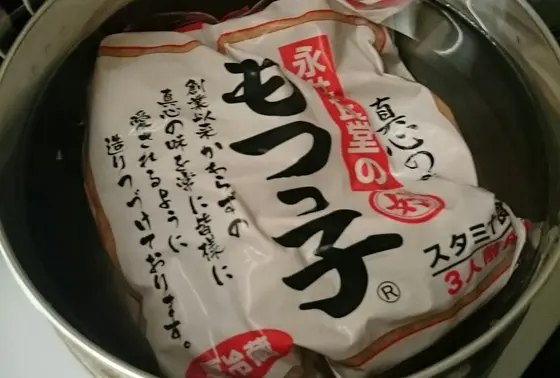 真心の
永井食堂の
もつっ子
®
創業以来かわらずの
真心の味を常に皆様に
愛されるように
造りつづけております。
スタミナ
3人前
冷蔵